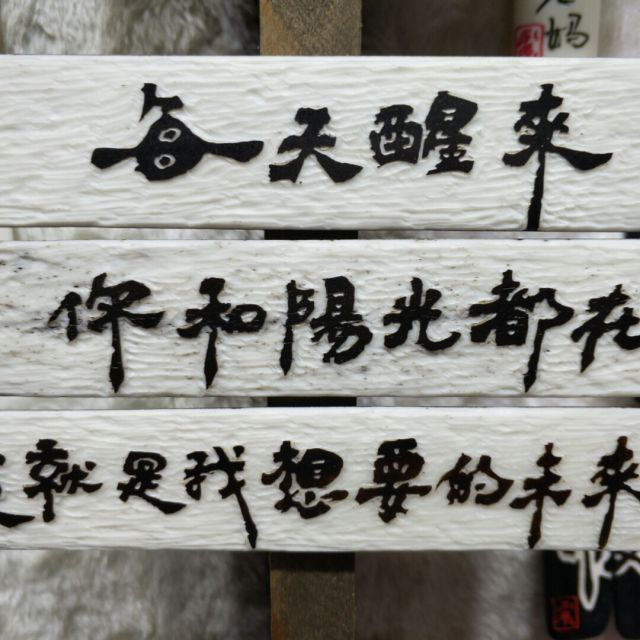 每天醒來
你和陽光都在
就是我想要的未來